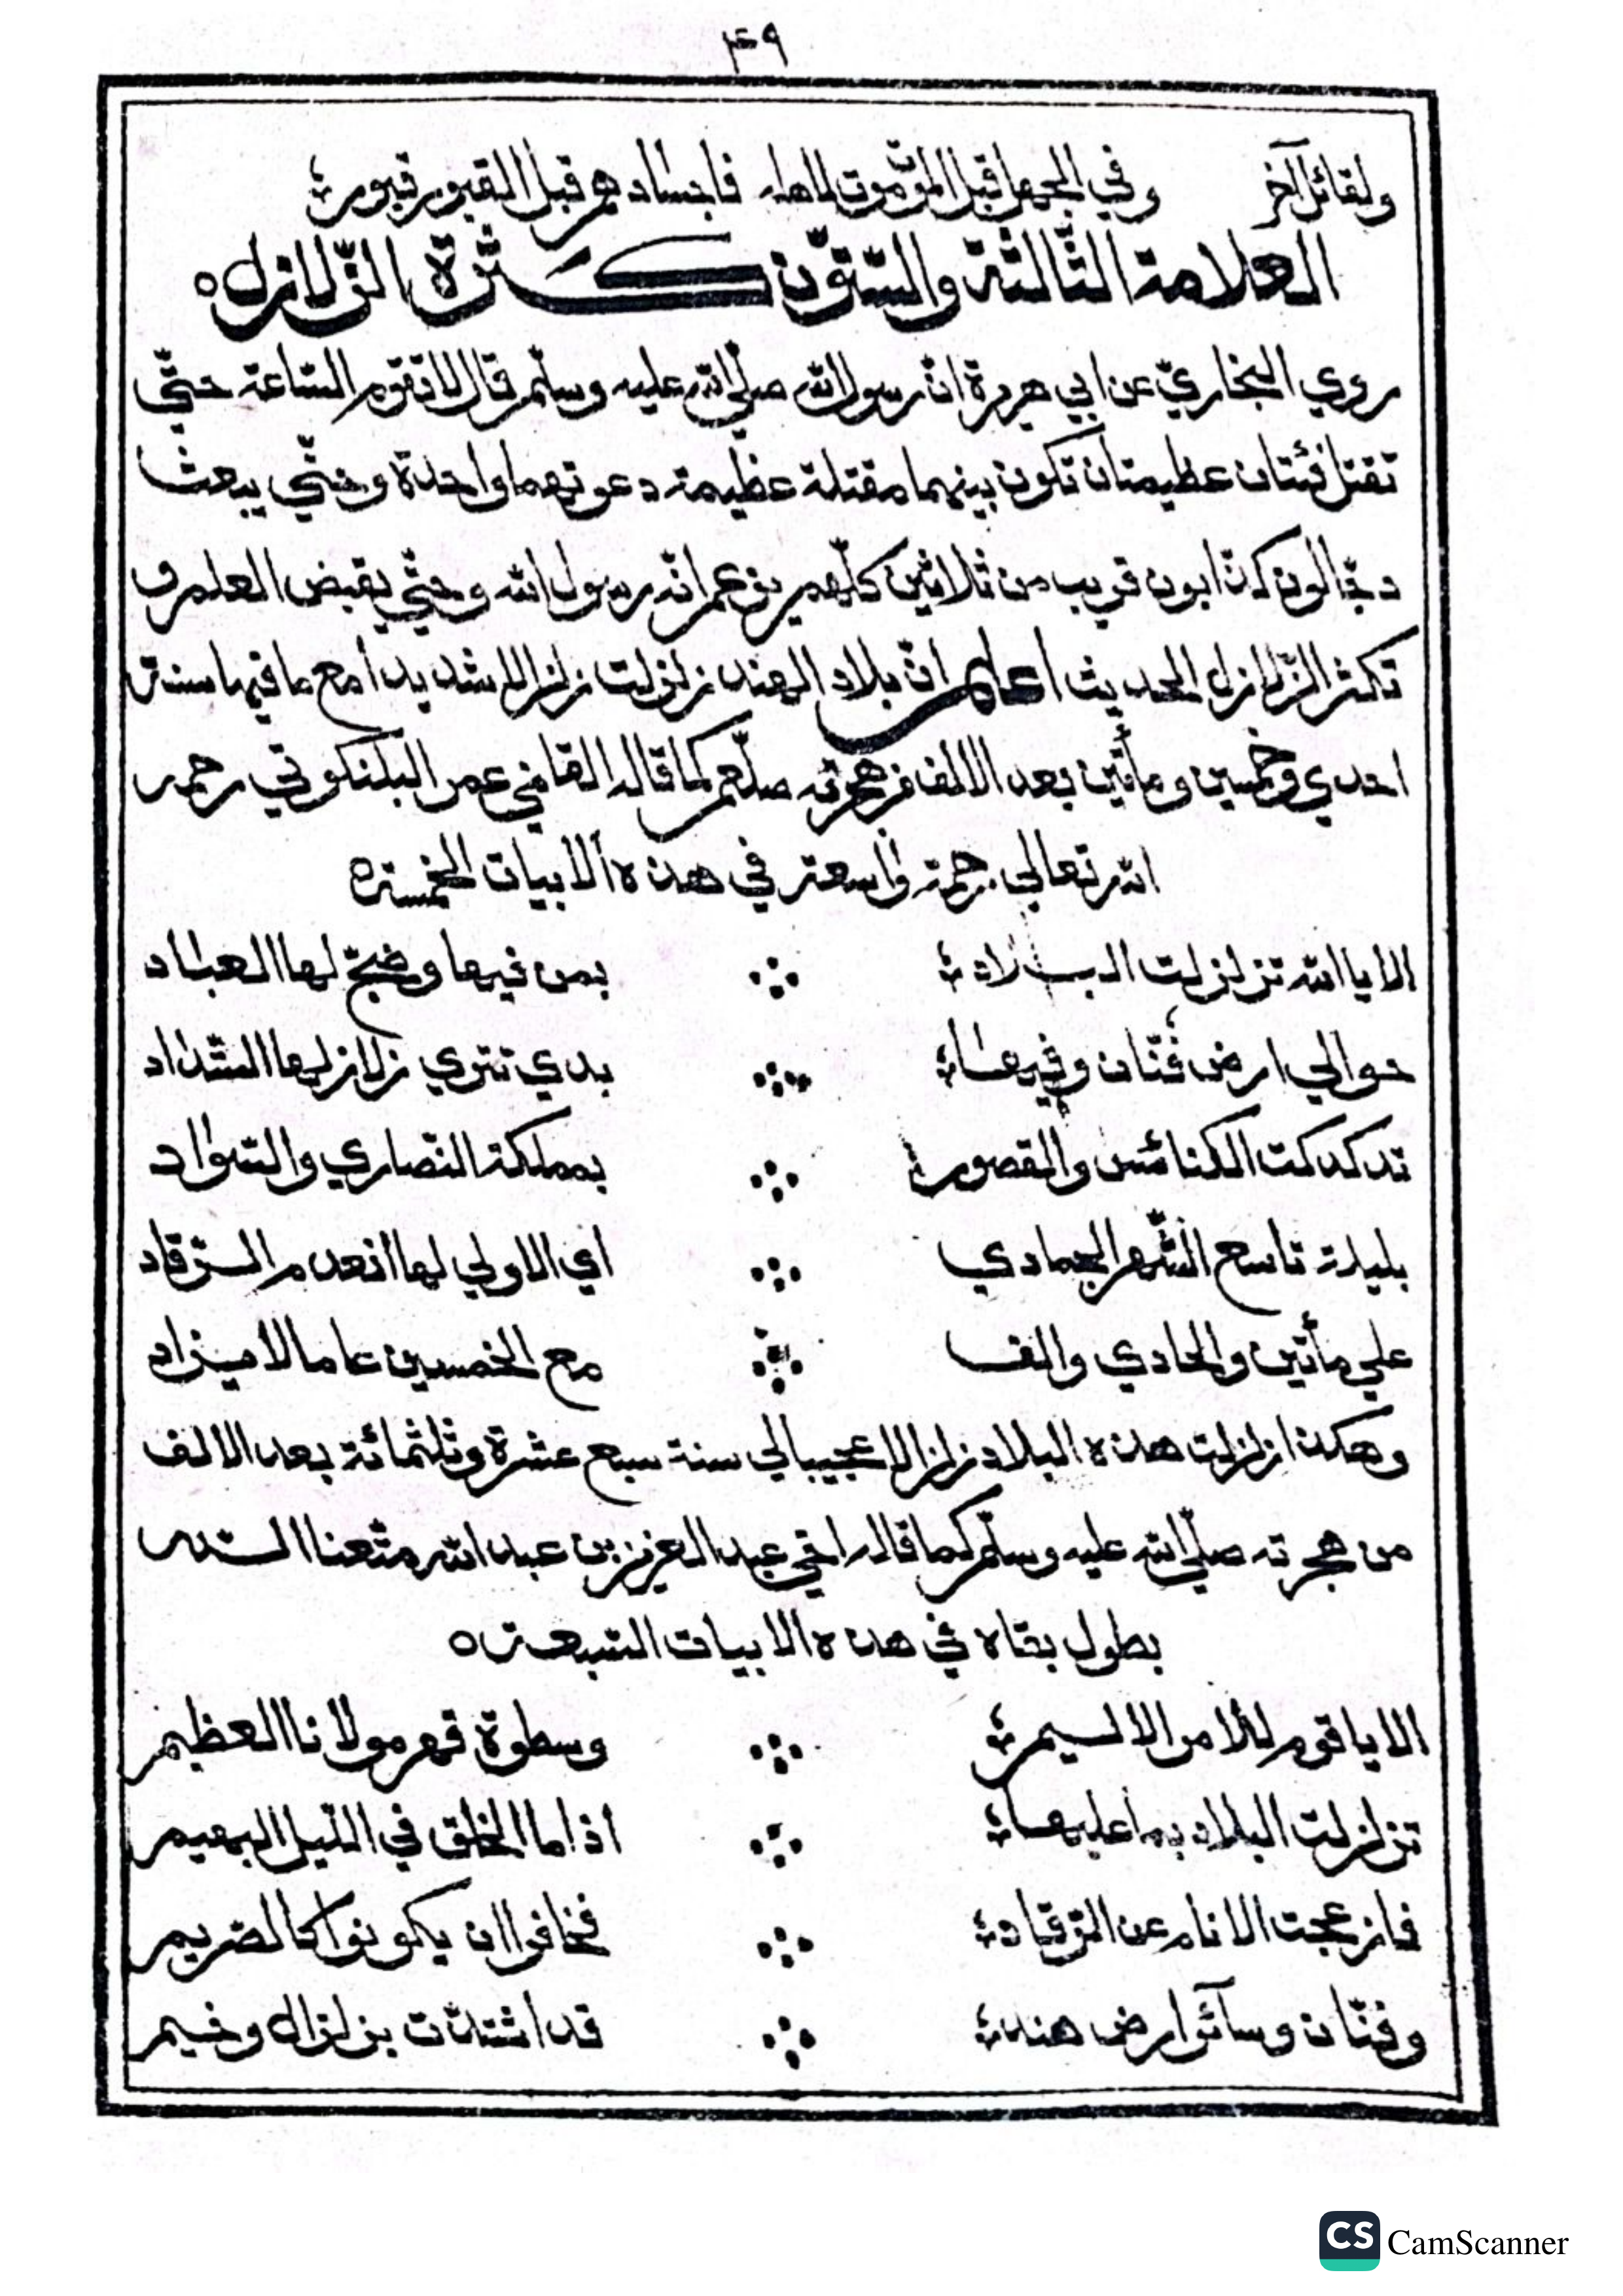 ٤٩
ولقائل آخر وفي الجهل قبل الموت موت لاهله فاجسادهم قبل القبور قبور
العلامة الثّالثة والسّتّون كثرة الزّلازل
روي البخاريّ عن ابي هريرة انّ رسول الله صلّي الله عليه وسلّم قال لا تقوم السّاعة حتّي
تقتتل فئتان عظيمتان تكون بينهما مقتلة عظيمة دعوتهما واحدة وحتّي يبعث
دجّالون كذّابون قريب من ثلاثين كلّهم يزعم انّه رسول الله وحتّي يقبض العلم و
تكثر الزّلازل الحديث اعلم انّ بلاد الهند زلزلت زلزالا شديدا مع ما فيها سنة
احدي وخمسين ومأتين بعد الالف من هجرته صلّعم كما قاله القاضي عمر البلنكوتي رحمه
الله تعالي رحمة واسعة في هذه الابيات الخمسة
الا يا الله تزلزلت البلاد بمن فيها وضجّ لها العباد
حوالي ارض فنّان وفيها بدي تتري زلازلها الشّداد
تدكدكت الكنائس والقصور بمملكة النّصاري والسّواد
بليلة تاسع الشّهر الجمادي اي الاولي لها انعدم الرّقاد
علي مأتين والحادي والف مع الخمسين عاما لا يزاد
وهكذا زلزلت هذه البلاد زلزالا عجيبا لي سنة سبع عشرة وثلثمائة بعد الالف
من هجرته صلّي الله عليه وسلّم كما قاله اخي عبد العزيز بن عبد الله متّعنا الله
بطول بقاه في هذه الابيات السّبعة
الا يا قوم للامر الاليم وسطوة قهر مولانا العظيم
تزلزلت البلاد بما عليها اذا ما الخلق في اللّيل البهيم
فانزعجت الانام عن الرّقاد فخافوا ان يكونوا كالصّريم
وفنّان وسآئر ارض هند قد اشتدّت بزلزال وخيم
CS CamScanner